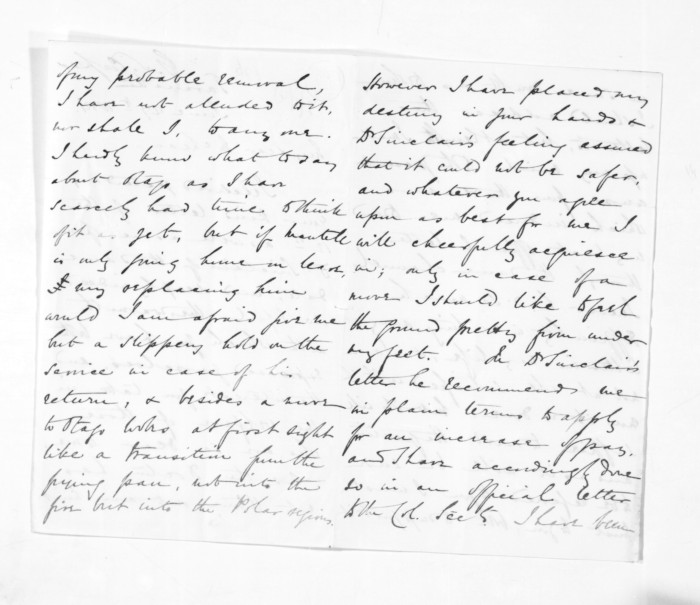 of my probable removal,
I have not alluded to it,
nor shall I, to any one.
I hardly know what to say
about Otago as I have
scarcely had time to think
of it as yet, but if Mantell
is only going home on leave,
my replacing him
would I am afraid give me
but a slippery hold on the
service in case of his
return, & besides a move
to Otago looks at first sight
like a transition from the
frying pan, not into the
fire but into the Polar regions.
However I have placed my
destiny in your hands &
Dr Sinclair's feeling assured
that it could not be safer,
and whatever you agree
upon as best for me I
will cheerfully acquiesce
in; only in case of a
move I should like to feel
the ground pretty firm under
my feet. In Dr Sinclair's
letter he recommends me
in plain terms to apply
for an increase of pay,
and I have accordingly done
so in an official letter
to the Col. Secty. I have been